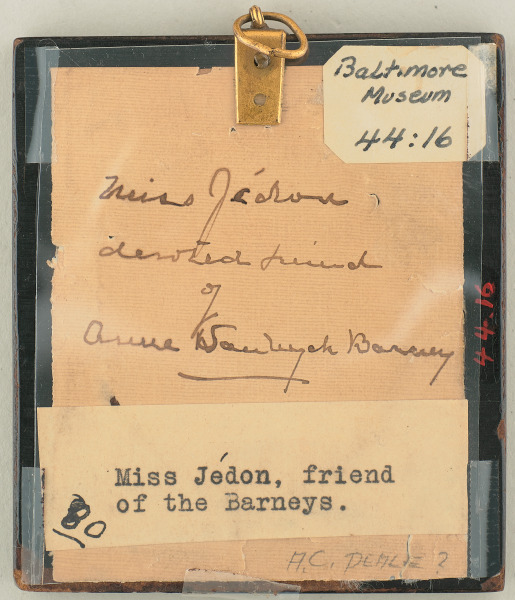 Baltimore
Museum
44:16
Miss Jédon
devoted friend
of
Anne Barney
44.16
Miss Jédon, friend
of the Barneys.
80
A.C. PEALE ?